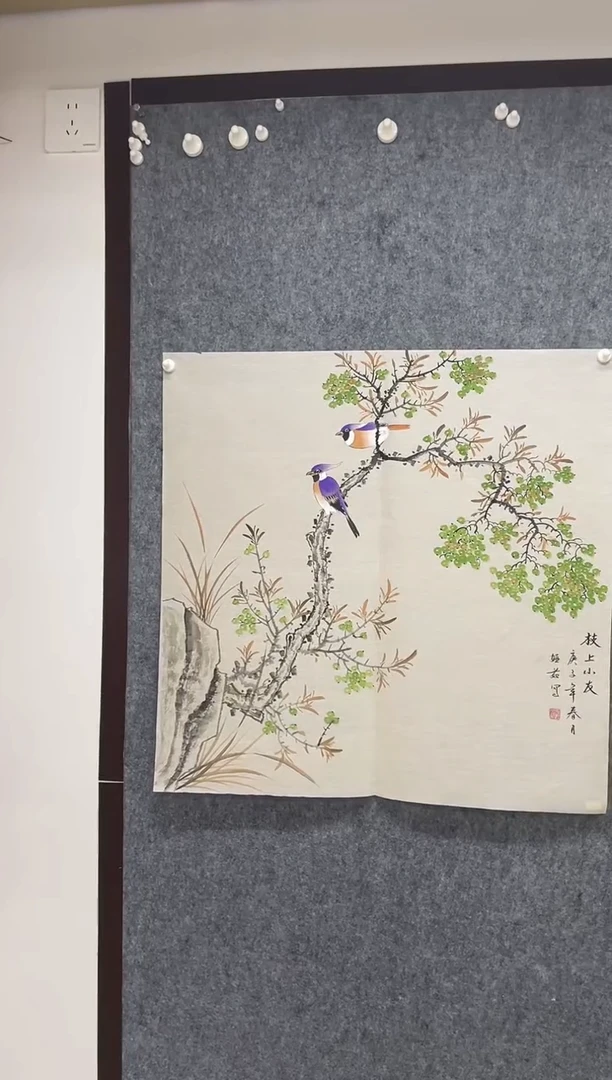 枝上小友
庚子年春月
茹写